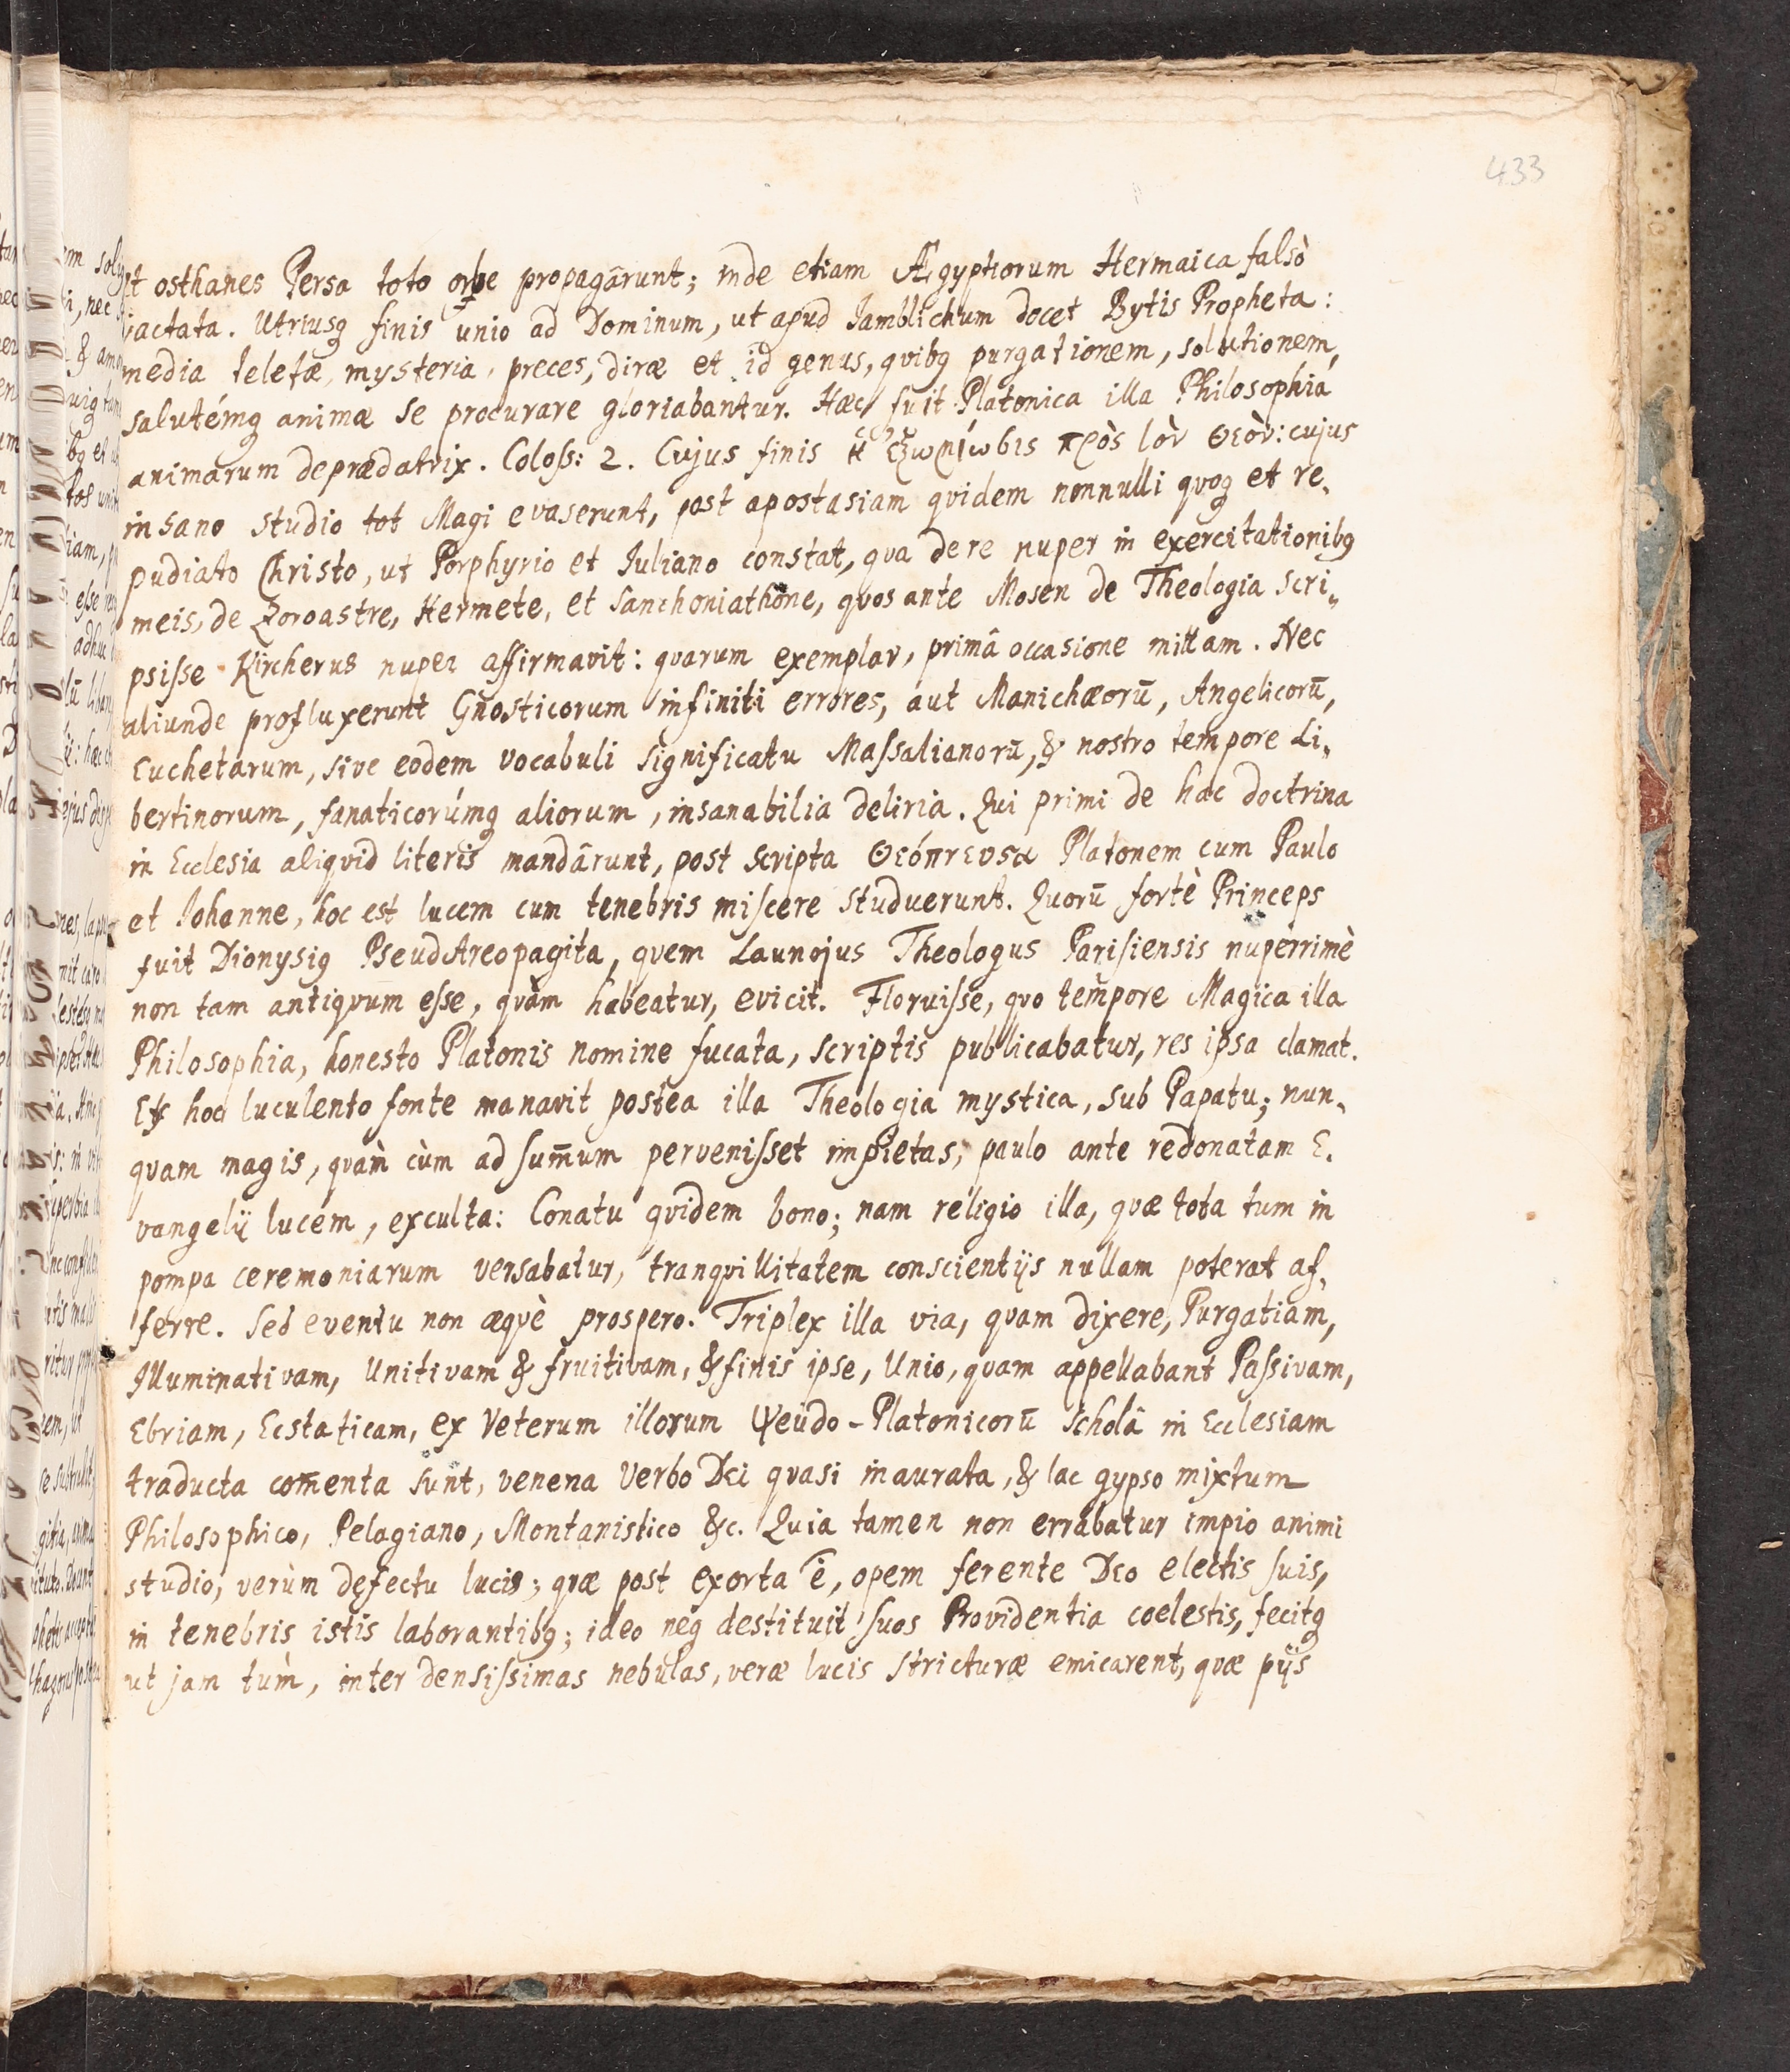 433
et osthanes Persa toto orbe propagârunt; inde etiam Ægyptiorum Hermaica falsò
iactata. Utriusq finis unio ad Dominum, ut apud Iamblichum docet Bytis Propheta:
media teletæ, mysteria, preces, diræ et id genus, qvibq purgationem, solutionem,
salutémq animæ se procurare gloriabantur. Hæc fuit Platonica illa Philosophia
animarum deprædatrix. Coloss: 2. Cujus finis πρὸς τὸν Θεὸν: cujus
insano studio tot Magi evaserunt, post apostasiam qvidem nonnulli qvoq et re„
pudiato Christo, ut Porphyrio et Iuliano constat, qva de re nuper in exercitationibq
meis, de Zoroastre, Hermete, et Sanchoniathone, qvos ante Mosen de Theologia scri„
psisse Kircherus nuper affirmavit: qvarum exemplar, primâ occasione mittam. Nec
aliunde profluxerunt Gnosticorum infiniti errores, aut Manichæorū, Angelicorū,
Euchetarum, sive eodem vocabuli significatu Massalianorū, & nostro tempore Li„
bertinorum, fanaticorúmq aliorum, insanabilia deliria. Qui primi de hac doctrina
in Ecclesia aliqvid literis mandârunt, post scripta Θεόπνευσα Platonem cum Paulo
et Iohanne, hoc est lucem cum tenebris miscere studuerunt. Quorū fortè Princeps
fuit Dionysiq PseudAreopagita, qvem Launojus Theologus Parisiensis nuperrimè
non tam antiqvum esse, qvàm habeatur, evicit. Floruisse, qvo tempore Magica illa
Philosophia, honesto Platonis nomine fucata, scriptis publicabatur, res ipsa clamat.
Ex hoc luculento fonte manavit postea illa Theologia mystica, sub Papatu; nun„
qvam magis, qvàm cùm ad sum̄um pervenisset impietas, paulo ante redonatam E„
vangelij lucem, exculta: Conatu qvidem bono; nam religio illa, qvæ tota tum in
pompa ceremoniarum versabatur, tranqvillitatem conscientijs nullam poterat af„
ferre. Sed eventu non æqvè prospero. Triplex illa via, qvam dixere, Purgatiam,
Illuminativam, Unitivam & fruitivam, & finis ipse, Unio, qvam appellabant Passivam,
Ebriam, Ecstaticam, ex Veterum illorum Ψeudo-Platonicorū Scholâ in Ecclesiam
traducta com̄enta sunt, venena Verbo Dei qvasi inaurata, & lac gypso mixtum
Philosophico, Pelagiano, Montanistico &c. Quia tamen non errabatur impio animi
studio, verùm defectu lucis; qvæ post exorta ē, opem ferente Deo electis suis,
in tenebris istis laborantibq; ideo neq destituit suos Providentia coelestis, fecitq
ut jam tùm, inter densissimas nebulas, veræ lucis stricturæ emicarent, qvæ pijs